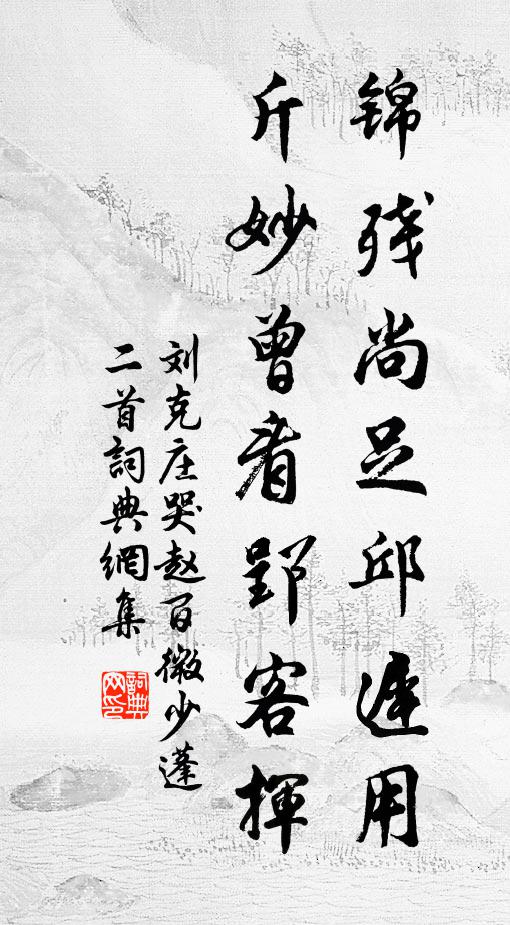 锦残尚足邱迟用
斤妙曾看郢客挥
刘克庄哭赵百微少蓬
二首詞典網集
詞典网印